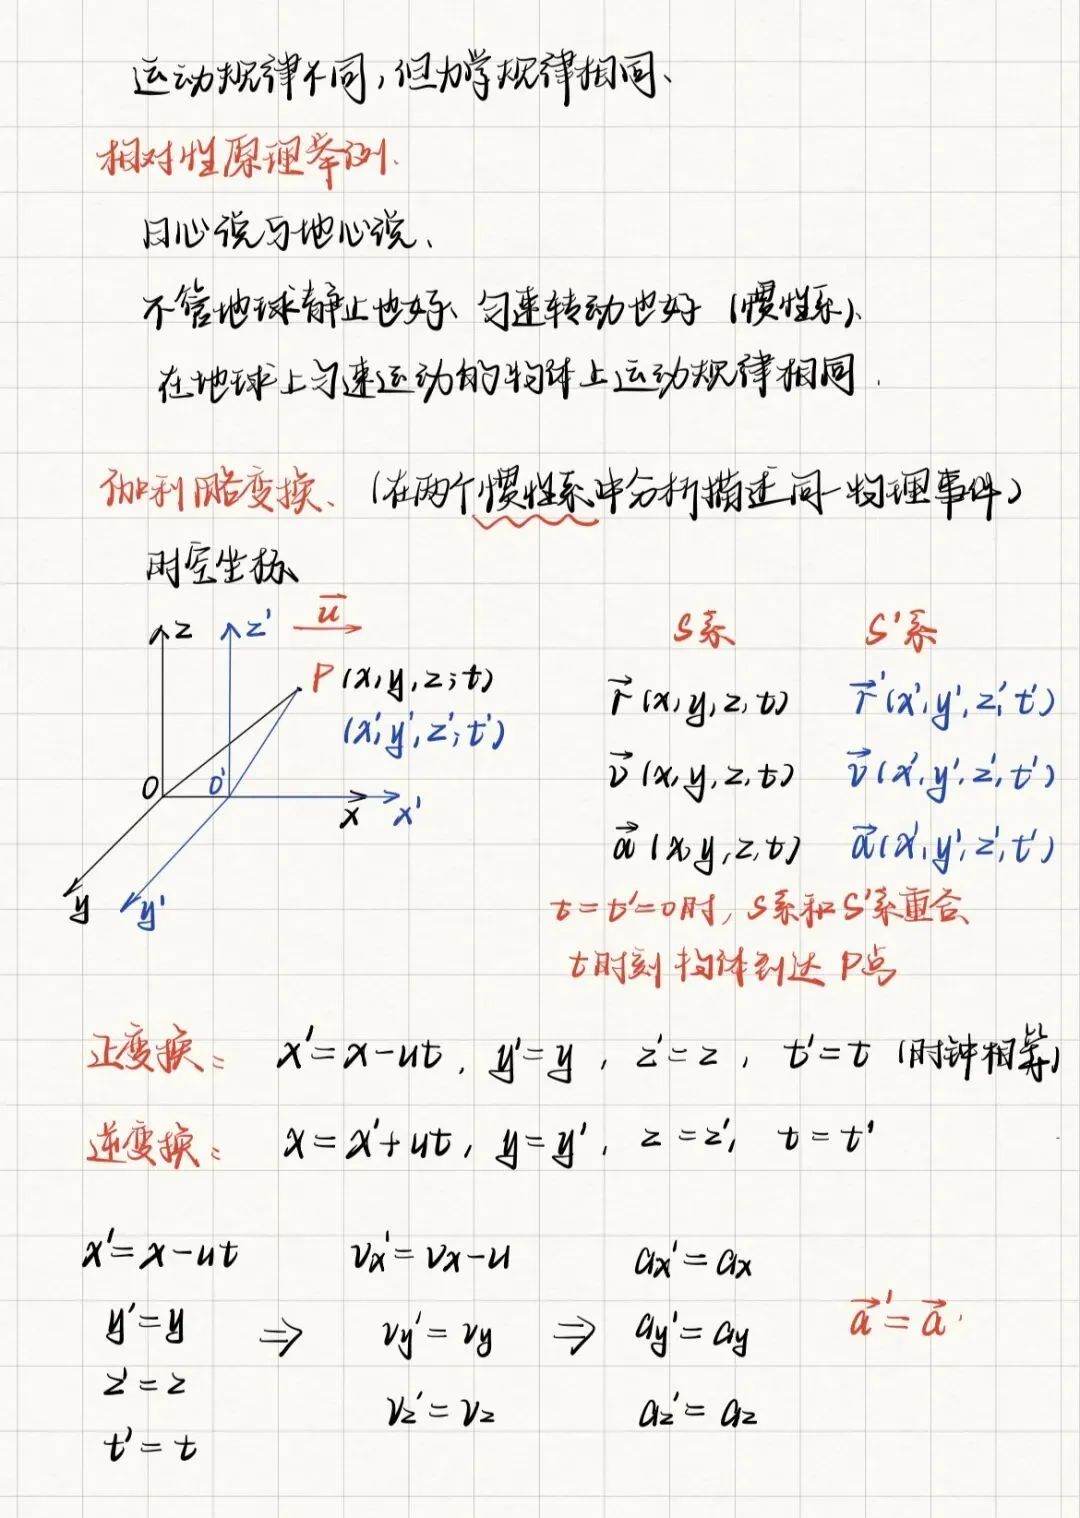 运动规律不同,但力学规律相同、
相对性原理举例.
日心说与地心说、
不管地球静止也好、匀速转动也好(惯性系)、
在地球上匀速运动的物体上运动规律相同.
伽利略变换、(在两个惯性系中分析描述同一物理事件)
时空坐标、
z z' u⃗
P(x,y,z;t)
(x',y',z';t')
O O' x x'
y y'
S系 S'系
r⃗(x,y,z,t) r⃗'(x',y',z',t')
v⃗(x,y,z,t) v⃗'(x',y',z',t')
a⃗(x,y,z,t) a⃗'(x',y',z',t')
t=t'=0时,S系和S'系重合、
t时刻物体到达P点
正变换: x'=x-ut, y'=y, z'=z, t'=t (时钟相等)
逆变换: x=x'+ut, y=y', z=z', t=t'
x'=x-ut vx'=vx-u ax'=ax
y'=y ⇒ vy'=vy ⇒ ay'=ay a⃗'=a⃗.
z'=z vz'=vz az'=az
t'=t